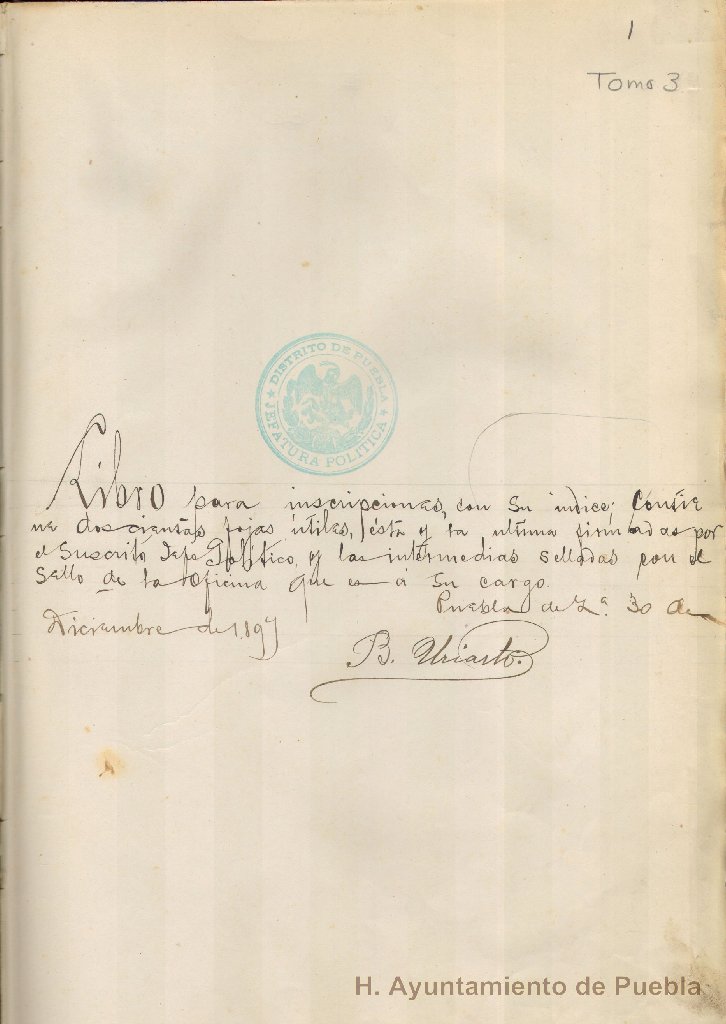 1
Tomo 3
DISTRITO DE PUEBLA
JEFATURA POLITICA
Libro para inscripciones, con su indice; Contie
ne doscientas fojas útiles, ésta y la ultima firmadas por
el Suscrito Jefe Politico, y las intermedias selladas con el
Sello de la Oficina que es á su cargo.
Puebla de Z.ª 30 de
Diciembre de 1897
B. Uriarte.
H. Ayuntamiento de Puebla